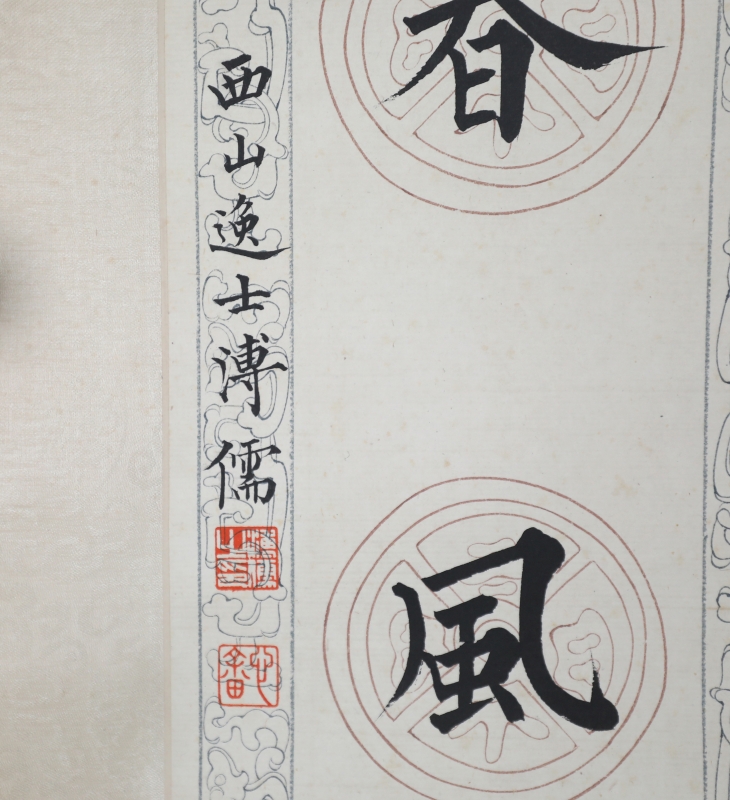 春風
西山逸士溥儒
心畬